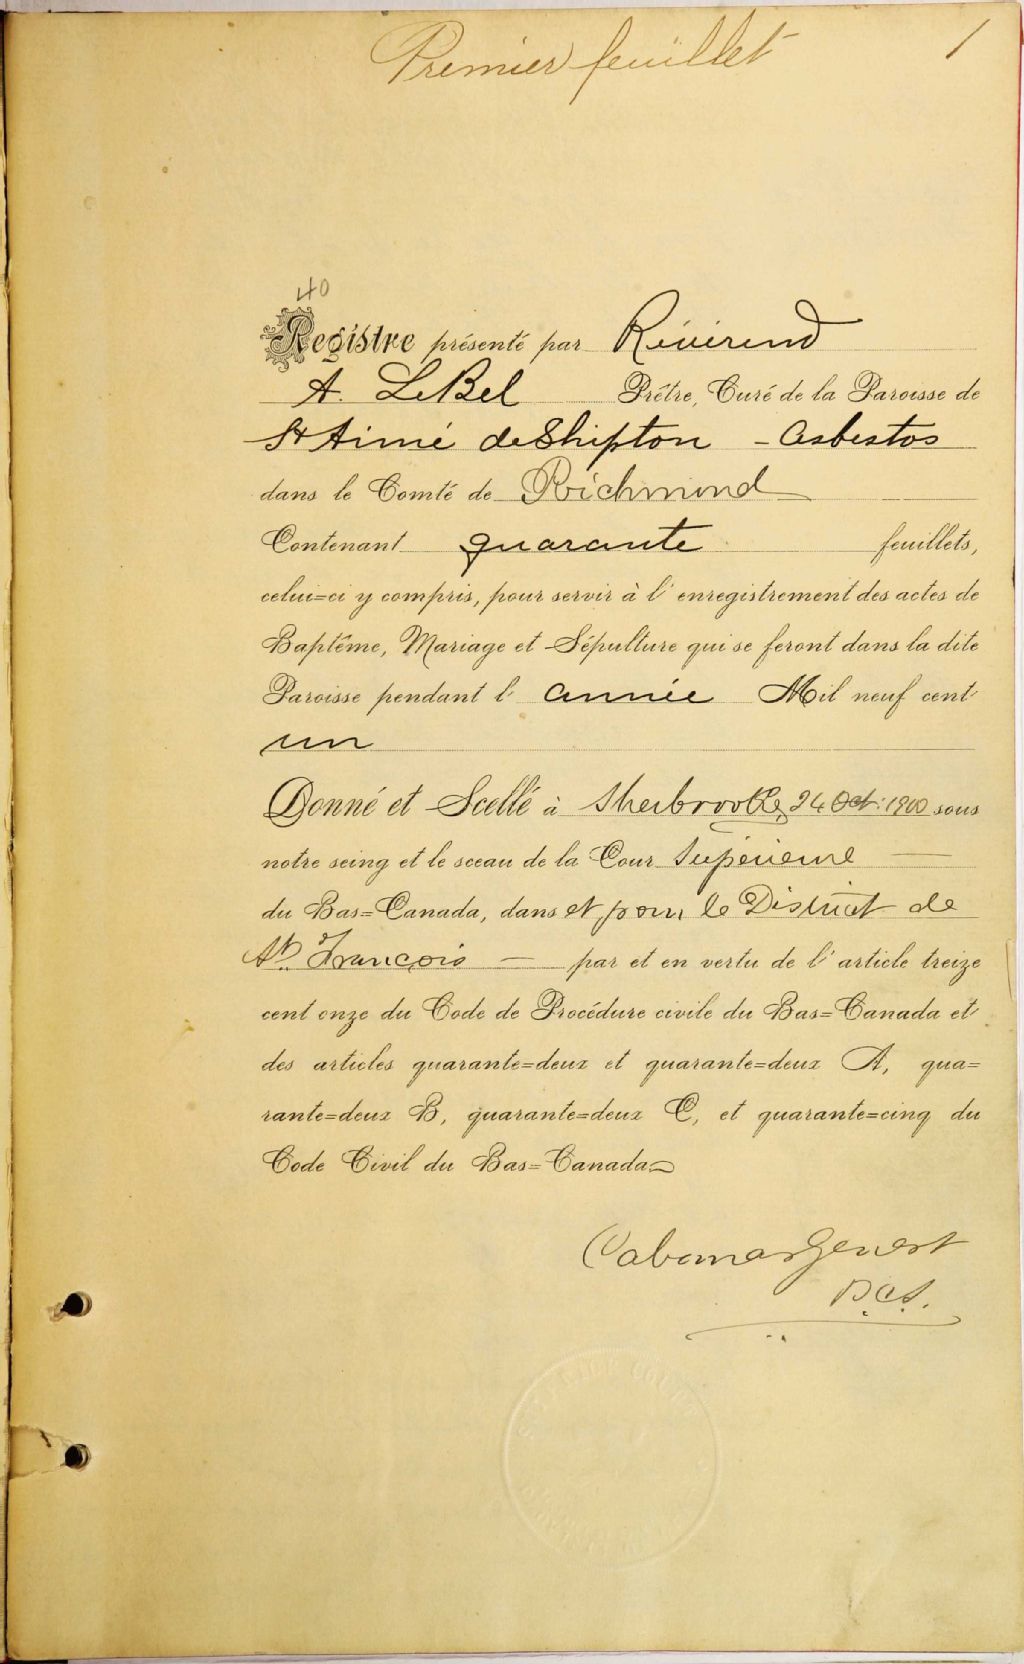 Premier feuillet 1
40
Registre présenté par Révérend
A. LeBel Prêtre, Curé de la Paroisse de
St Aimé de Shipton - Asbestos
dans le Comté de Richmond
Contenant quarante feuillets,
celui=ci y compris, pour servir à l' enregistrement des actes de
Baptême, Mariage et Sépulture qui se feront dans la dite
Paroisse pendant l' année Mil neuf cent
un
Donné et Scellé à Sherbrooke, 24 Oct: 1900 sous
notre seing et le sceau de la Cour Supérieure
du Bas=Canada, dans et pour le District de
St. François — par et en vertu de l' article treize
cent onze du Code de Procédure civile du Bas=Canada et
des articles quarante=deux et quarante=deux A, qua=
rante=deux B, quarante=deux C, et quarante=cinq du
Code Civil du Bas=Canada
D.C.S.